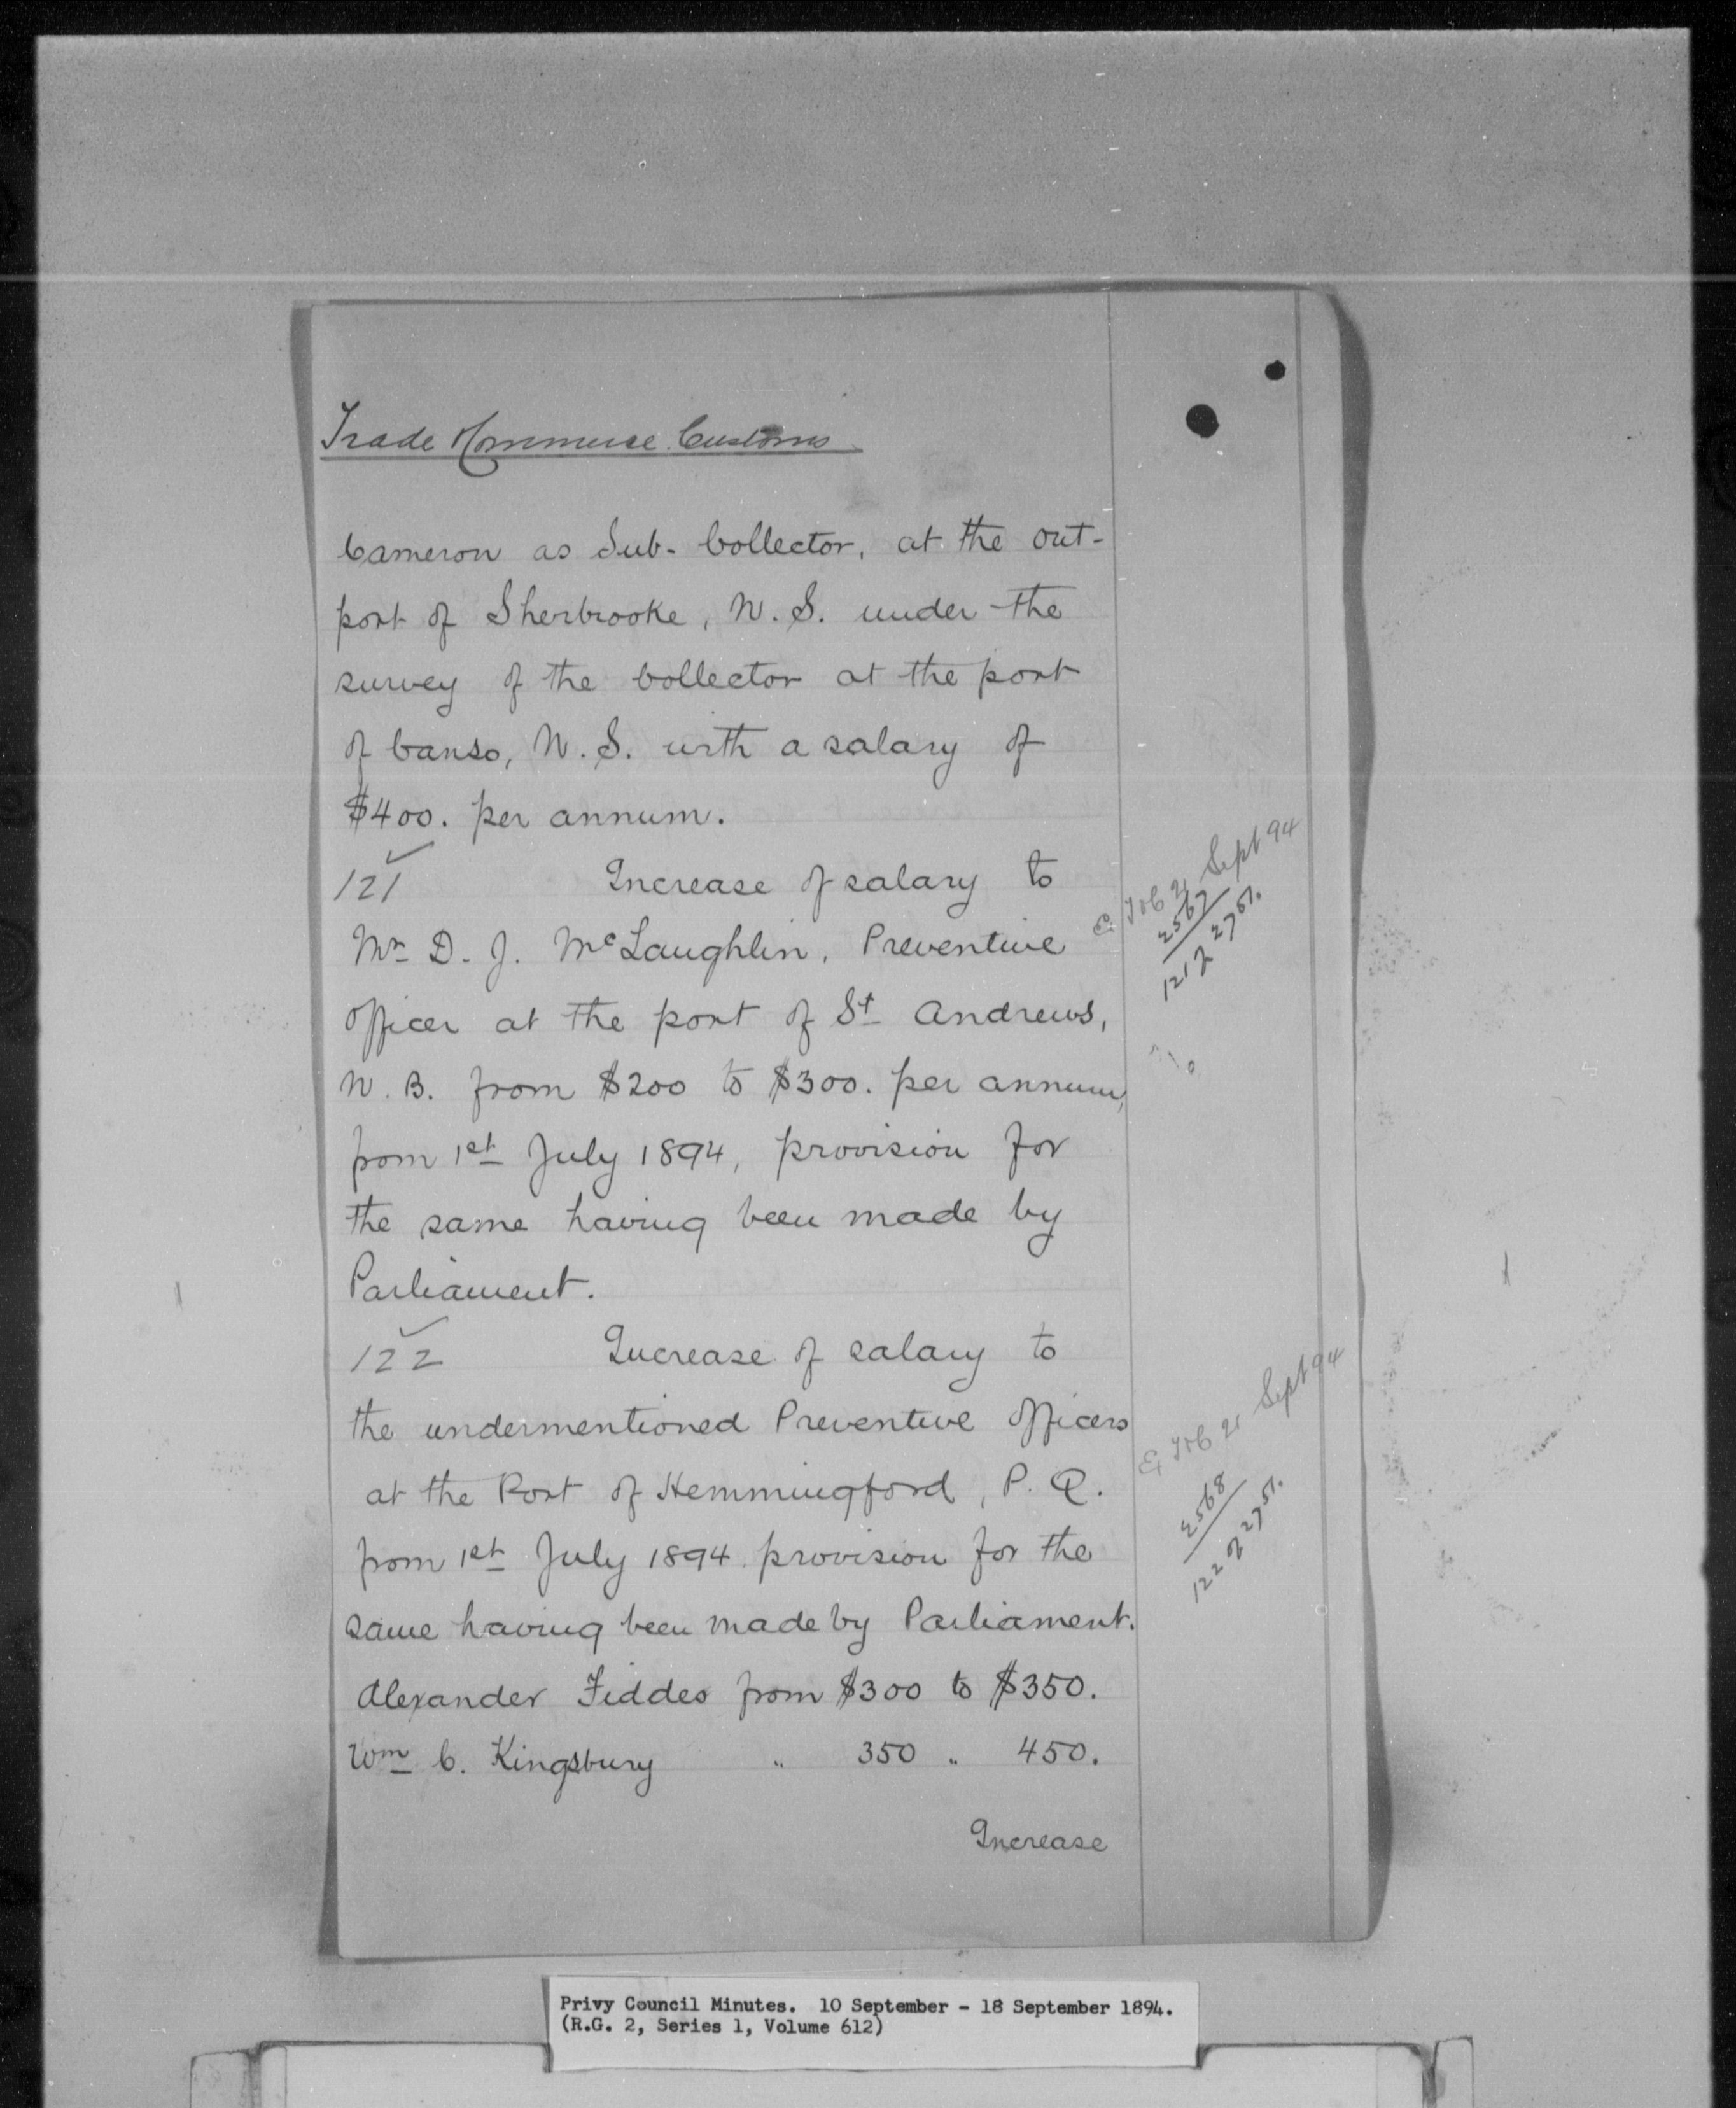 Trade & Commerce. Customs
Cameron as Sub-Collector, at the out-
port of Sherbrooke, N. S. under the
survey of the Collector at the port
of Canso, N. S. with a salary of
$400. per annum.
121 Increase of salary to
Mr D. J. McLaughlin, Preventive
officer at the port of St Andrews,
N. B. from $200 to $300. per annum,
from 1st July 1894, provision for
the same having been made by
Parliament.
122 Increase of salary to
the undermentioned Preventive officers
at the Port of Hemmingford, P. Q.
from 1st July 1894. provision for the
same having been made by Parliament.
Alexander Fiddes from $300 to $350.
Wm C. Kingsbury " 350 " 450.
Increase
21 Sept 94
2567
121 of 2751.
21 Sept 94
2568
122 of 2751.
Privy Council Minutes. 10 September - 18 September 1894.
(R.G. 2, Series 1, Volume 612)